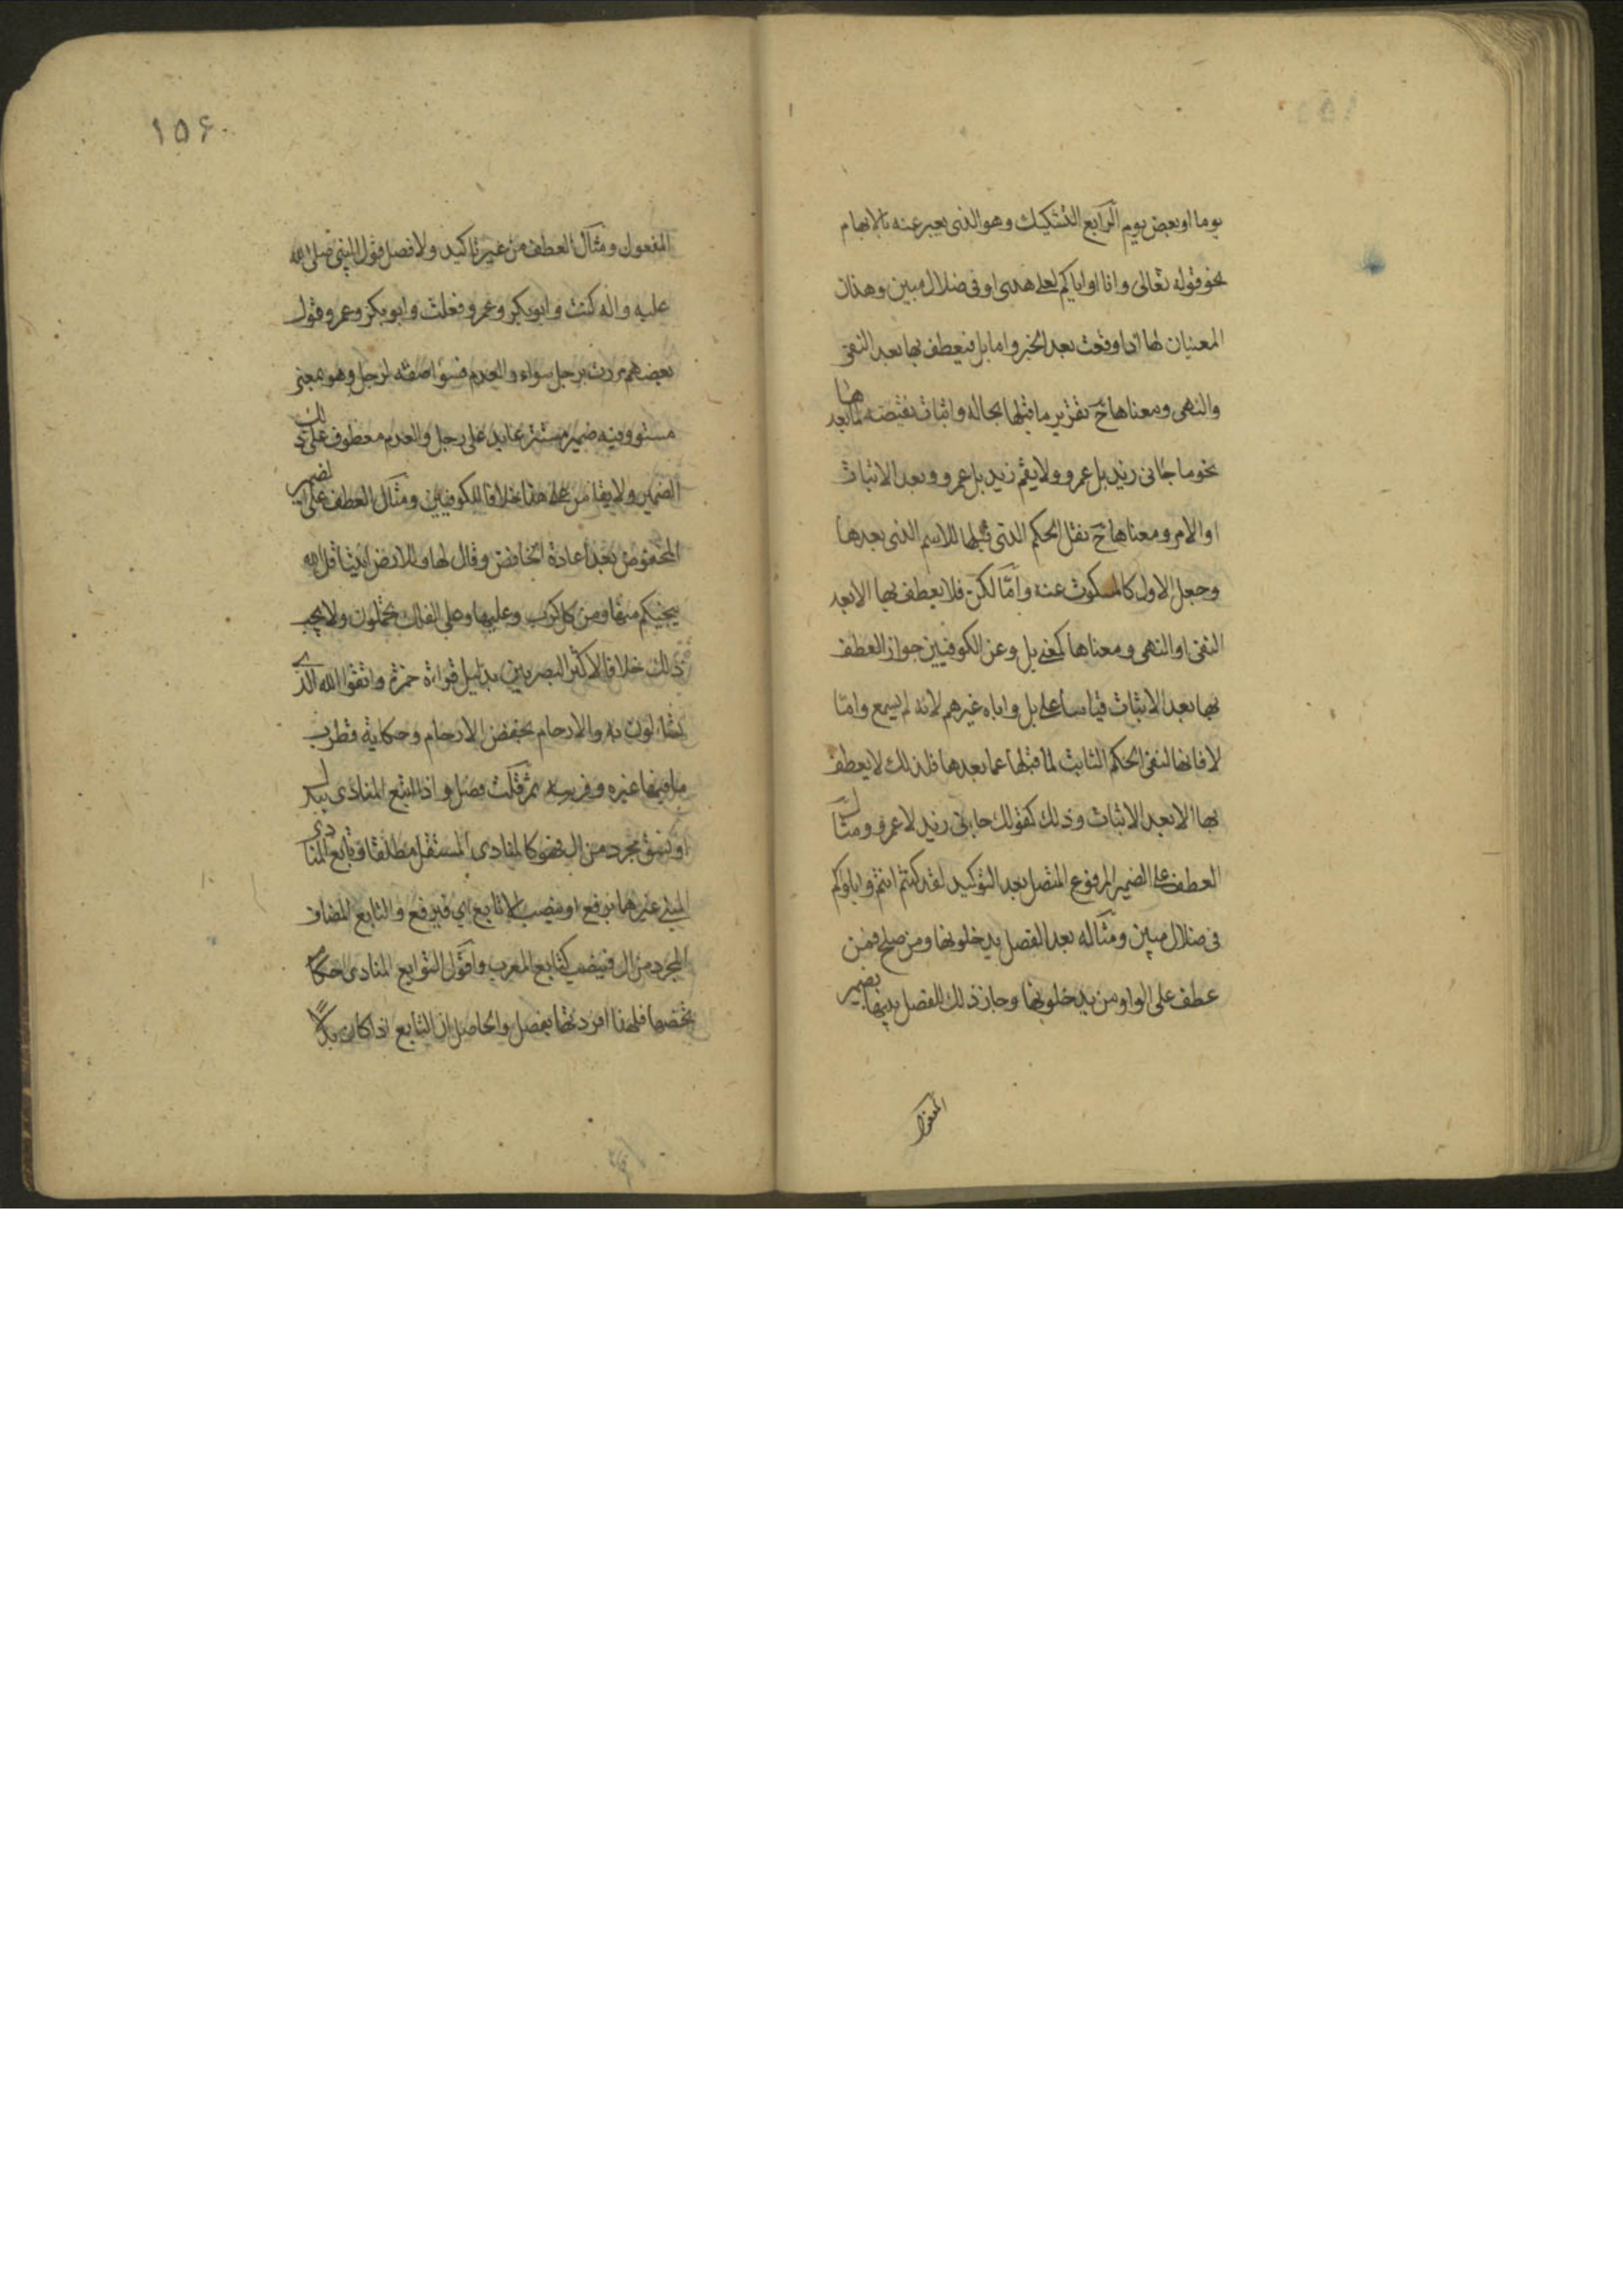 يوما او بعض يوم الرابع التشكيك وهو الذى يعبر عنه بالابهام
نحو قوله تعالى وانا او اياكم لعلى هدى او فى ضلال مبين وهذان
المعنيان لها اذا وقعت بعد الخبر واما بل فيعطف بها بعد النفى
والنهى ومعناها ح تقرير ما قبلها بحاله واثبات نقيضه لما بعدها
نحو ما جائى زيد بل عمرو ولا يقم زيد بل عمرو وبعد الاثبات
او الامر ومعناها ح نقل الحكم الذى قبلها للاسم الذى بعدها
وجعل الاول كالمسكوت عنه وامّا لكن فلا يعطف بها الا بعد
النفى او النهى ومعناها كمعنى بل وعن الكوفيين جواز العطف
بها بعد الاثبات قياسا على بل واباه غيرهم لانه لم يسمع وامّا
لا فانها لنفى الحكم الثابت لما قبلها عما بعدها فلذلك لا يعطف
بها الا بعد الاثبات وذلك كقولك جائى زيد لا عمرو ومثال
العطف على الضمير المرفوع المتصل بعد التوكيد لقد كنتم انتم واباؤكم
فى ضلال مبين ومثاله بعد الفصل يدخلونها ومن صلح فمن
عطف على الواو من يدخلونها وجاز ذلك للفصل بينهما بضمير
المفعول
١٥۶
المفعول ومثال العطف من غير تاكيد ولا فصل قول النبى صلى الله
عليه واله كنت وابوبكر وعمرو فعلت وابوبكر وعمرو قول
بعضهم مررت برجل سواء والعدم فسواء صفة لرجل وهو بمعنى
مستو وفيه ضمير مستتر عايد على رجل والعدم معطوف على ذلك
الضمير ولا يقاس على هذا خلافا للكوفيين ومثال العطف على الضمير
المخفوض بعد اعادة الخافض وقال لها وللارض ائتيا قل الله
ينجيكم منها ومن كل كرب وعليها وعلى الفلك تحملون ولا يجب
ذلك خلافا لاكثر البصريين بدليل قراءة حمزة واتقوا الله الذى
تسائلون به والارحام بخفض الارحام وحكاية قطرب
ما فيها غيره وفرسه ثم قلت فصل واذا اتبع المنادى ببدل
او نسق مجرد من ال فهو كالمنادى المستقل مطلقا وتابع المنادى
المبنى غيرهما يرفع او ينصب الا تابع اى فيرفع والتابع المضاف
المجرد من ال فينصب كتابع المعرب واقول لتوابع المنادى احكام
تخصها فلهذا افردتها بفصل والحاصل ان التابع اذا كان بدلًا